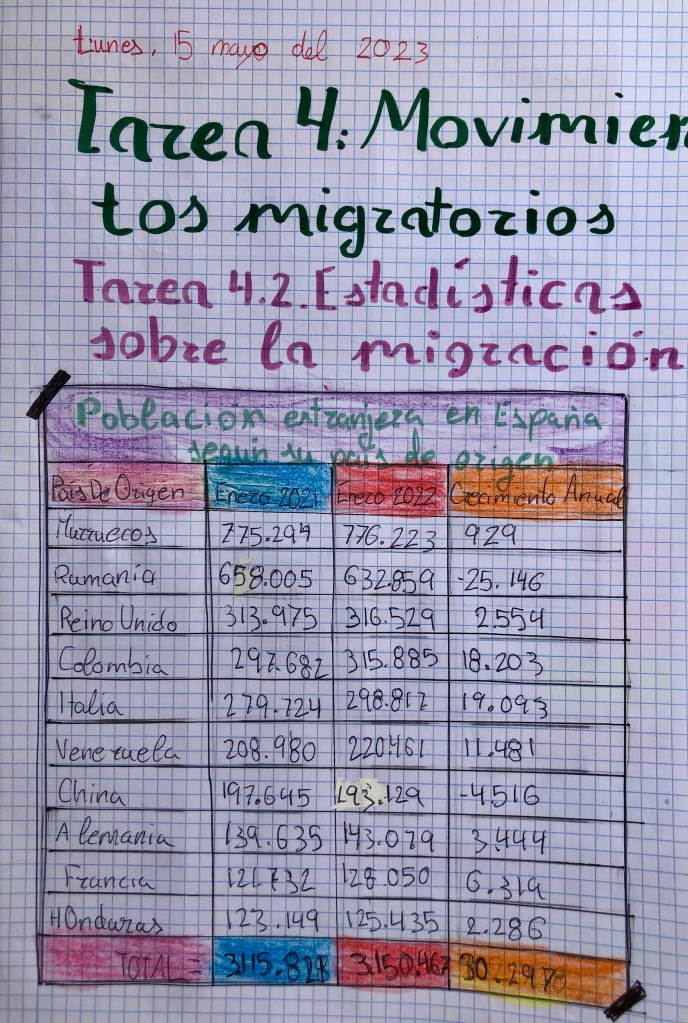 Lunes, 15 mayo del 2023
Tarea 4: Movimien
tos migratorios
Tarea 4.2. Estadísticas
sobre la migración
Población extranjera en España
según su país de origen
País De Origen Enero 2021 Enero 2022 Crecimiento Anual
Marruecos 775.294 776.223 929
Rumanía 658.005 632.859 -25.146
Reino Unido 313.975 316.529 2.554
Colombia 297.682 315.885 18.203
Italia 279.724 298.817 19.093
Venezuela 208.980 220.461 11.481
China 197.645 193.129 -4.516
Alemania 139.635 143.079 3.444
Francia 121.732 128.050 6.319
HOnduras 123.149 125.435 2.286
TOTAL = 3.150.467